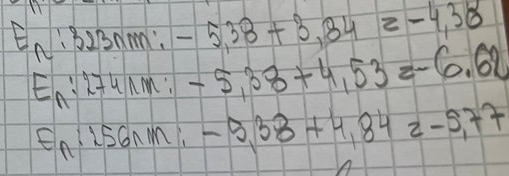 En: 323nm: - 5,38 + 3,84 = -4,38
En: 274nm: - 5,38 + 4,53 = -6.62
En: 256nm: - 5,38 + 4,84 = -5,77